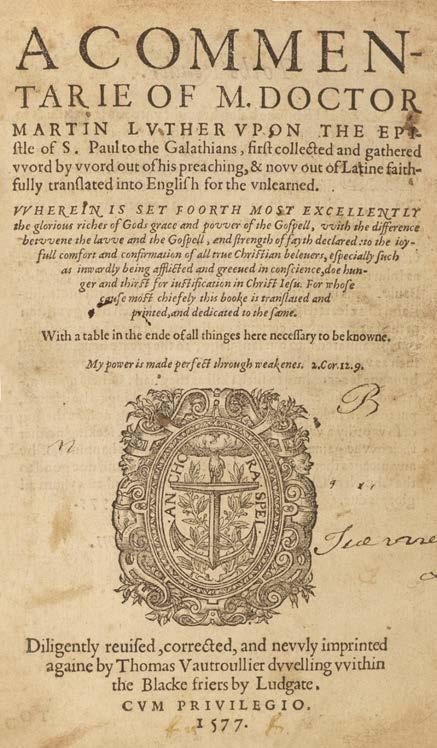 A COMMEN-
TARIE OF M. DOCTOR
MARTIN LVTHER VPON THE EPI-
stle of S. Paul to the Galathians, first collected and gathered
vvord by vvord out of his preaching, & novv out of Latine faith-
fully translated into English for the vnlearned.
VVHEREIN IS SET FOORTH MOST EXCELLENTLY
the glorious riches of Gods grace and povver of the Gospell, vvith the difference
betvvene the lavve and the Gospell, and strength of fayth declared: to the ioy-
full comfort and confirmation of all true Christian beleuers, especially such
as inwardly being afflicted and greeued in conscience, doe hun-
ger and thirst for iustification in Christ Iesu. For whose
cause most chiefely this booke is translated and
printed, and dedicated to the same.
With a table in the ende of all thinges here necessary to be knowne.
My power is made perfect through weakenes. 2. Cor. 12. 9.
B
n
ANCHORA SPEI.
Diligently reuised, corrected, and nevvly imprinted
againe by Thomas Vautroullier dvvelling vvithin
the Blacke friers by Ludgate.
CVM PRIVILEGIO.
1577.